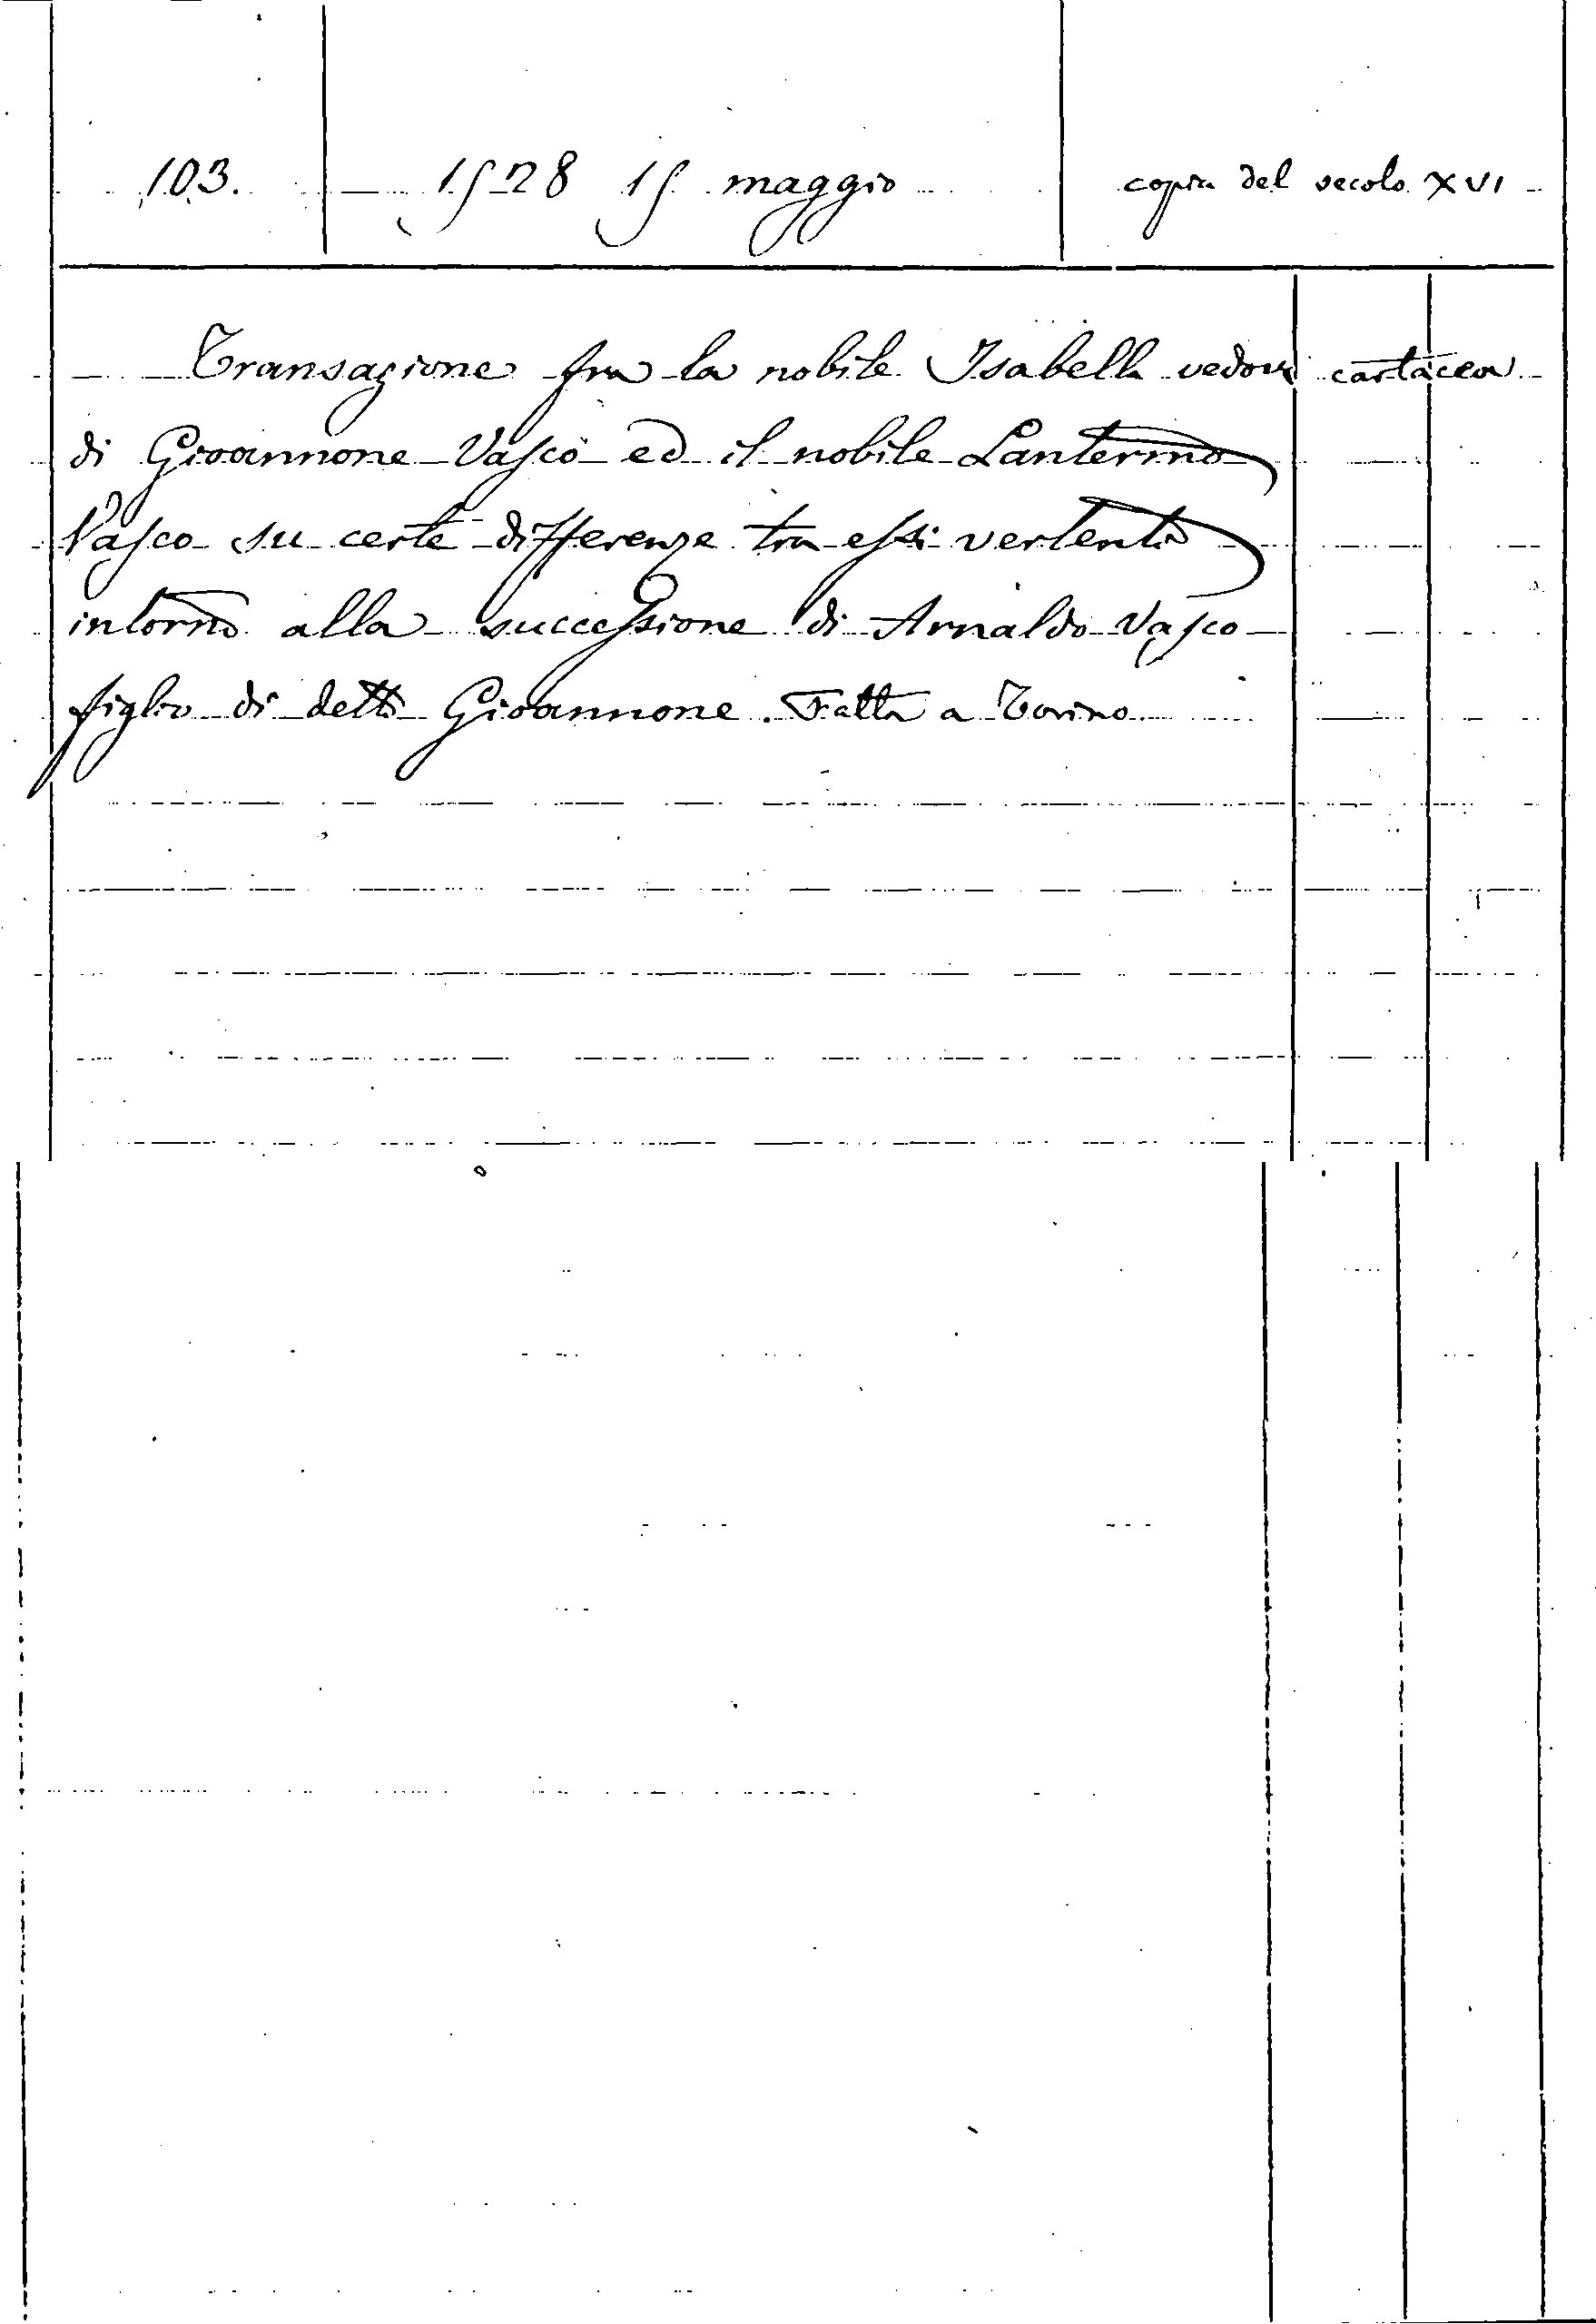 103. 1528 15 maggio copia del secolo XVI
Transazione fra la nobile Isabella vedova cartacea
di Gioannone Vasco ed il nobile Lantermo
Vasco su certe differenze tra essi vertenti
intorno alla successione di Arnaldo Vasco
figlio di detto Gioannone. Fatta a Torino